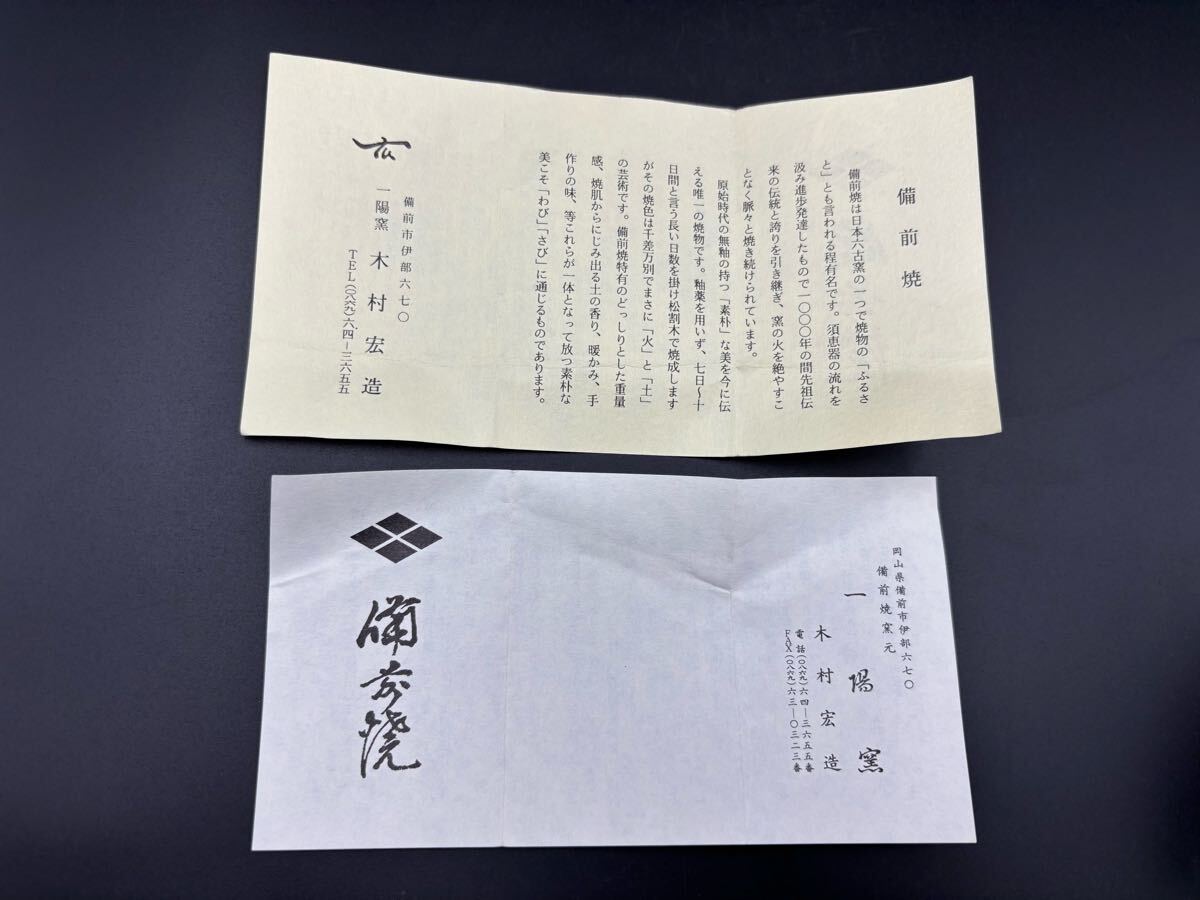 備前焼
備前焼は日本六古窯の一つで焼物の「ふるさ
と」とも言われる程有名です。須恵器の流れを
汲み進歩発達したもので一〇〇〇年の間先祖伝
来の伝統と誇りを引き継ぎ、窯の火を絶やすこ
となく脈々と焼き続けられています。
原始時代の無釉の持つ「素朴」な美を今に伝
える唯一の焼物です。釉薬を用いず、七日〜十
日間と言う長い日数を掛け松割木で焼成します
がその焼色は千差万別でまさに「火」と「土」
の芸術です。備前焼特有のどっしりとした重量
感、焼肌からにじみ出る土の香り、暖かみ、手
作りの味、等これらが一体となって放つ素朴な
美こそ「わび」「さび」に通じるものであります。
備前市伊部六七〇
一陽窯 木村宏造
TEL(〇八六九)六四-三六五五
岡山県備前市伊部六七〇
備前焼窯元
一陽窯
木村宏造
電話(〇八六九)六四-三六五五番
FAX(〇八六九)六三-〇三二三番
備前焼